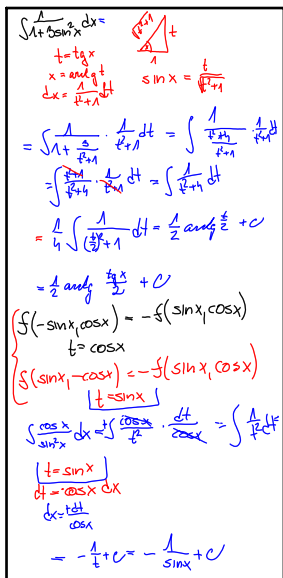 ∫ 1/(1+3sin²x) dx =
√(t²+1) t
1
t = tg x
x = arctg t
dx = 1/(t²+1) dt
sin x = t/√(t²+1)
= ∫ 1/(1 + 3/(t²+1)) · 1/(t²+1) dt = ∫ 1/((t²+4)/(t²+1)) · 1/(t²+1) dt
= ∫ (t²+1)/(t²+4) · 1/(t²+1) dt = ∫ 1/(t²+4) dt
= 1/4 ∫ 1/((t/2)²+1) dt = 1/2 arctg t/2 + C
= 1/2 arctg (tg x)/2 + C
f(-sin x, cos x) = -f(sin x, cos x)
t = cos x
f(sin x, -cos x) = -f(sin x, cos x)
t = sin x
∫ cos x/sin²x dx = + ∫ cos x/t² · dt/cos x = ∫ 1/t² dt =
t = sin x
dt = cos x dx
dx = +dt/cos x
= -1/t + C = - 1/sin x + C